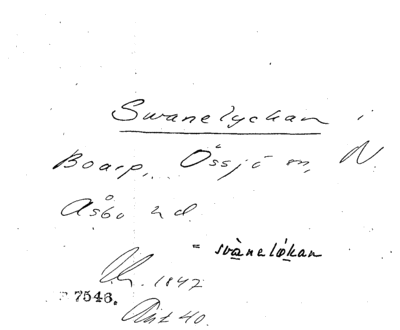 Swanelyckan i
Boarp, Össjö sn, N.
Åsbo hd
= svàneløkan
1847
7546.
Akt 40.